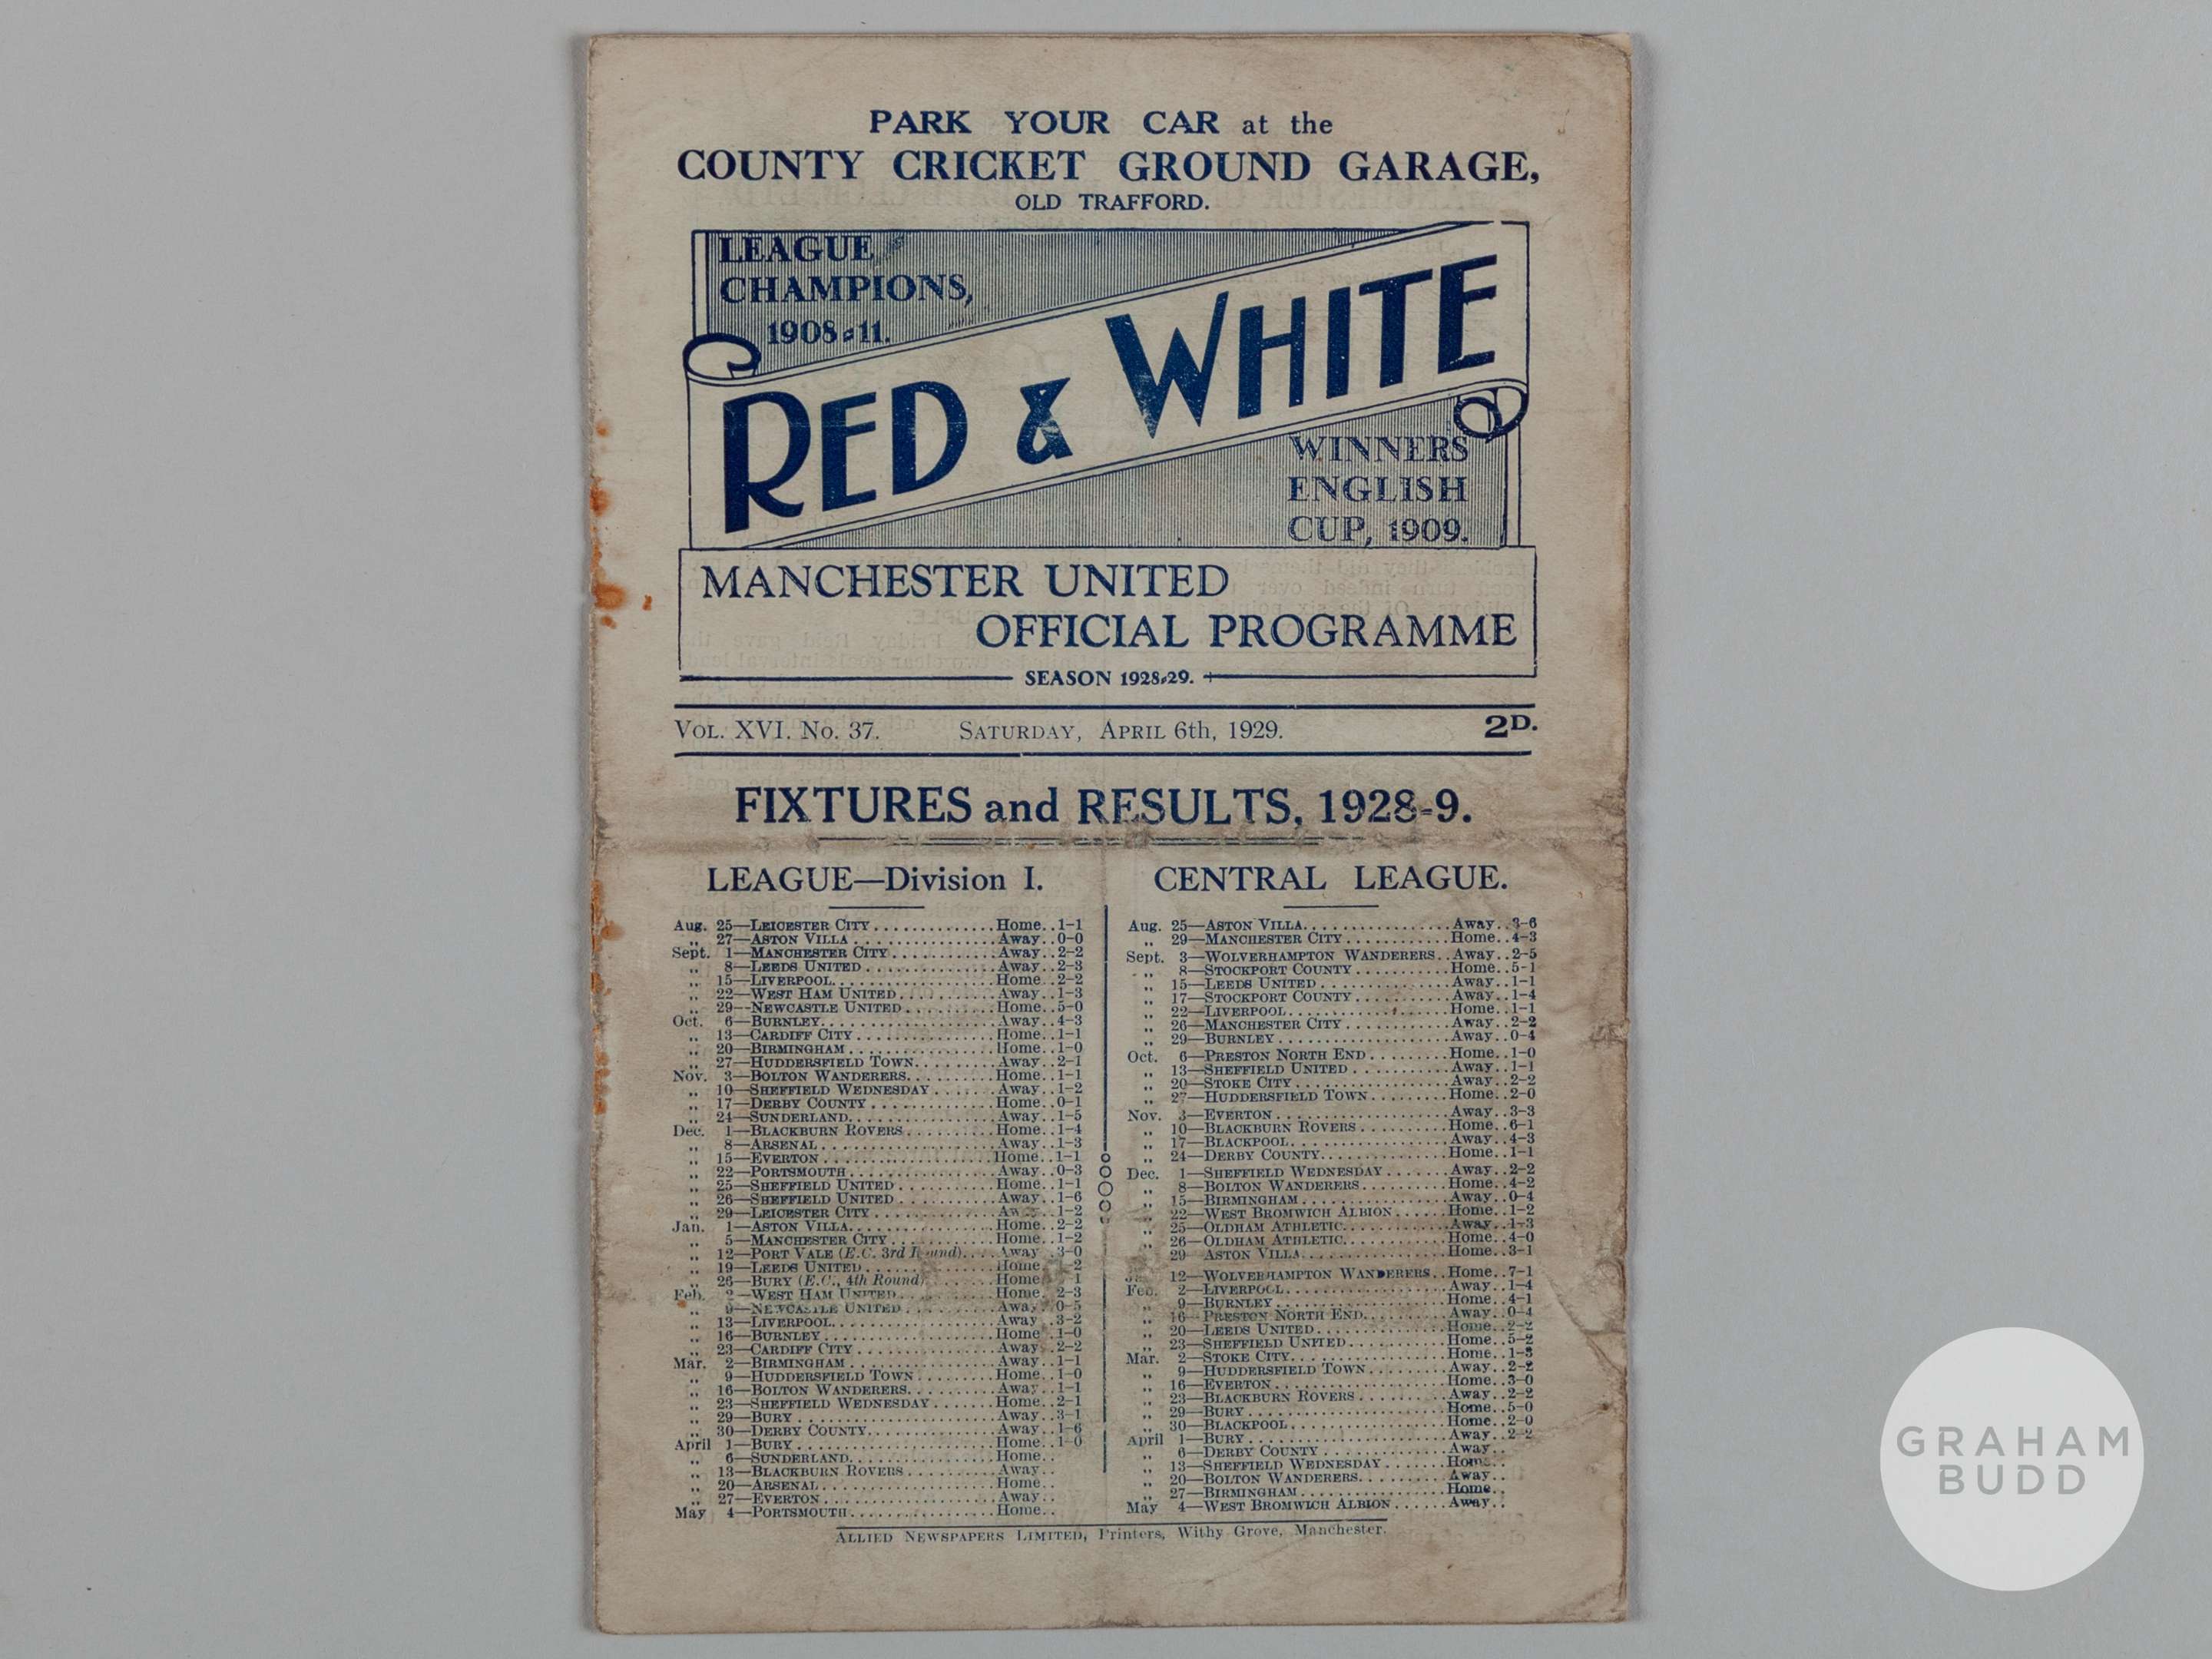 PARK YOUR CAR at the
COUNTY CRICKET GROUND GARAGE,
OLD TRAFFORD.
LEAGUE
CHAMPIONS,
1908-11.
RED & WHITE
WINNERS
ENGLISH
CUP, 1909.
MANCHESTER UNITED
OFFICIAL PROGRAMME
SEASON 1928-29.
VOL. XVI. No. 37. SATURDAY, APRIL 6th, 1929. 2D.
FIXTURES and RESULTS, 1928-9.
LEAGUE—Division I.
Aug. 25—LEICESTER CITY..............Home..1-1
,, 27—ASTON VILLA................Away..0-0
Sept. 1—MANCHESTER CITY............Away..2-2
,, 8—LEEDS UNITED..............Away..2-3
,, 15—LIVERPOOL..................Home..2-2
,, 22—WEST HAM UNITED...........Away..1-3
,, 29—NEWCASTLE UNITED..........Home..5-0
Oct. 6—BURNLEY....................Away..4-3
,, 13—CARDIFF CITY...............Home..1-1
,, 20—BIRMINGHAM................Home..1-0
,, 27—HUDDERSFIELD TOWN.........Away..2-1
Nov. 3—BOLTON WANDERERS..........Home..1-1
,, 10—SHEFFIELD WEDNESDAY.......Away..1-2
,, 17—DERBY COUNTY..............Home..0-1
,, 24—SUNDERLAND................Away..1-5
Dec. 1—BLACKBURN ROVERS..........Home..1-4
,, 8—ARSENAL....................Away..1-3
,, 15—EVERTON...................Home..1-1
,, 22—PORTSMOUTH................Away..0-3
,, 25—SHEFFIELD UNITED..........Home..1-1
,, 26—SHEFFIELD UNITED..........Away..1-6
,, 29—LEICESTER CITY..............1-2
Jan. 1—ASTON VILLA................Home..2-2
,, 5—MANCHESTER CITY............Home..1-2
,, 12—PORT VALE (E.C. 3rd Round)....Away..3-0
,, 19—LEEDS UNITED..............Home..-2
,, 26—BURY (E.C., 4th Round)......Home 1
Feb. 2—WEST HAM UNITED...........Home..2-3
,, 9—NEWCASTLE UNITED..........Away..0-5
,, 13—LIVERPOOL..................Away..3-2
,, 16—BURNLEY....................Home..1-0
,, 23—CARDIFF CITY...............Away..2-2
Mar. 2—BIRMINGHAM................Away..1-1
,, 9—HUDDERSFIELD TOWN.........Home..1-0
,, 16—BOLTON WANDERERS..........Away..1-1
,, 23—SHEFFIELD WEDNESDAY.......Home..2-1
,, 29—BURY......................Away..3-1
,, 30—DERBY COUNTY..............Away..1-6
April 1—BURY......................Home..1-0
,, 6—SUNDERLAND................Home..
,, 13—BLACKBURN ROVERS..........Away..
,, 20—ARSENAL....................Home..
,, 27—EVERTON...................Away..
May 4—PORTSMOUTH................Home..
CENTRAL LEAGUE.
Aug. 25—ASTON VILLA................Away..3-6
,, 29—MANCHESTER CITY............Home..4-3
Sept. 3—WOLVERHAMPTON WANDERERS..Away..2-5
,, 8—STOCKPORT COUNTY...........Home..5-1
,, 15—LEEDS UNITED..............Away..1-1
,, 17—STOCKPORT COUNTY...........Away..1-4
,, 22—LIVERPOOL..................Home..1-1
,, 26—MANCHESTER CITY............Away..2-2
,, 29—BURNLEY....................Away..0-4
Oct. 6—PRESTON NORTH END.........Home..1-0
,, 13—SHEFFIELD UNITED...........Away..1-1
,, 20—STOKE CITY.................Away..2-2
,, 27—HUDDERSFIELD TOWN.........Home..2-0
Nov. 3—EVERTON...................Away..3-3
,, 10—BLACKBURN ROVERS..........Home..6-1
,, 17—BLACKPOOL..................Away..4-3
,, 24—DERBY COUNTY..............Home..1-1
Dec. 1—SHEFFIELD WEDNESDAY.......Away..2-2
,, 8—BOLTON WANDERERS..........Home..4-2
,, 15—BIRMINGHAM................Away..0-4
,, 22—WEST BROMWICH ALBION......Home..1-2
,, 25—OLDHAM ATHLETIC............Away..1-3
,, 26—OLDHAM ATHLETIC............Home..4-0
,, 29 ASTON VILLA................Home..3-1
12—WOLVERHAMPTON WANDERERS..Home..7-1
Feb. 2—LIVERPOOL..................Away..1-4
,, 9—BURNLEY....................Home..4-1
,, 16—PRESTON NORTH END.........Away..0-4
,, 20—LEEDS UNITED..............Home..2-2
,, 23—SHEFFIELD UNITED...........Home..5-2
Mar. 2—STOKE CITY.................Home..1-3
,, 9—HUDDERSFIELD TOWN.........Away..2-2
,, 16—EVERTON...................Home..3-0
,, 23—BLACKBURN ROVERS..........Away..2-2
,, 29—BURY......................Home..5-0
,, 30—BLACKPOOL..................Home..2-0
April 1—BURY......................Away..2-2
,, 6—DERBY COUNTY..............Away..
,, 13—SHEFFIELD WEDNESDAY.......Home..
,, 20—BOLTON WANDERERS..........Away..
,, 27—BIRMINGHAM................Home..
May 4—WEST BROMWICH ALBION......Away..
ALLIED NEWSPAPERS LIMITED, Printers, Withy Grove, Manchester.
GRAHAM
BUDD